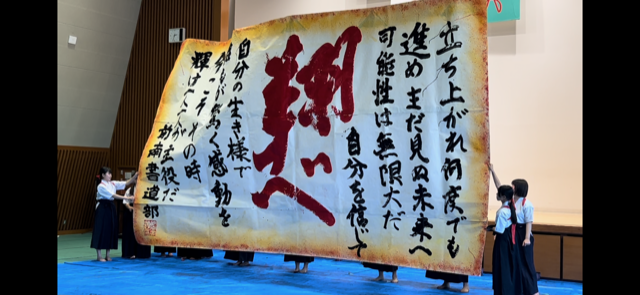 立ち上がれ何度でも
進めまだ見ぬ未来へ
可能性は無限大だ
自分を信じて
翔べ
自分の生き様で
く感動を
こそその時
輝け
主役だ
南書道部